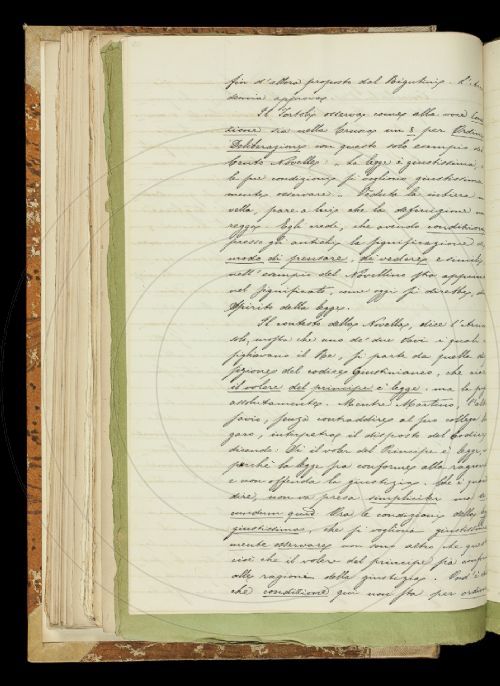 fin d'allora proposte dal Bigutini. L'Acca
demia approva.
Il Tortoli osserva come alla voce Con
dizione sia nella Crusca un § per Ordine
Deliberazione con questo solo esempio
Cento Novelle: La legge è giustissima
le sue condizioni si vogliono giustissima
mente osservare. Veduta la intiera
vella, pare a lui che la definizione
regga. Egli crede, che avendo condizione
presso gli antichi la significazione
modo di pensare, di vedere e simili
nell'esempio del Novellino sta
nel significato, come oggi si direbbe,
Spirito della legge.
Il contesto della Novella, dice l'Arci
solo, mostra che uno de' due Savi i quali
sigliavano il Re, si parte da quella
sizione del codice Giustinianeo, che
il volere del principe è legge, ma la
assolutamente. Mentre Martino, l'al
savio, senza contraddire al suo collega
garo, interpetra il disposto del Codice
dicendo: Sì il voler del Principe è legge,
perchè la legge sia conforme alla ragione
e non offenda la giustizia. Ciò è
dire, non va presa simpliciter ma
cundum quid. Ora le condizioni della
giustissima, che si vogliono giustissima
mente osservare non sono altro, che
cioè che il volere del principe sia
alla ragione della giustizia. Ond'è
che condizione qui non sta per ordine